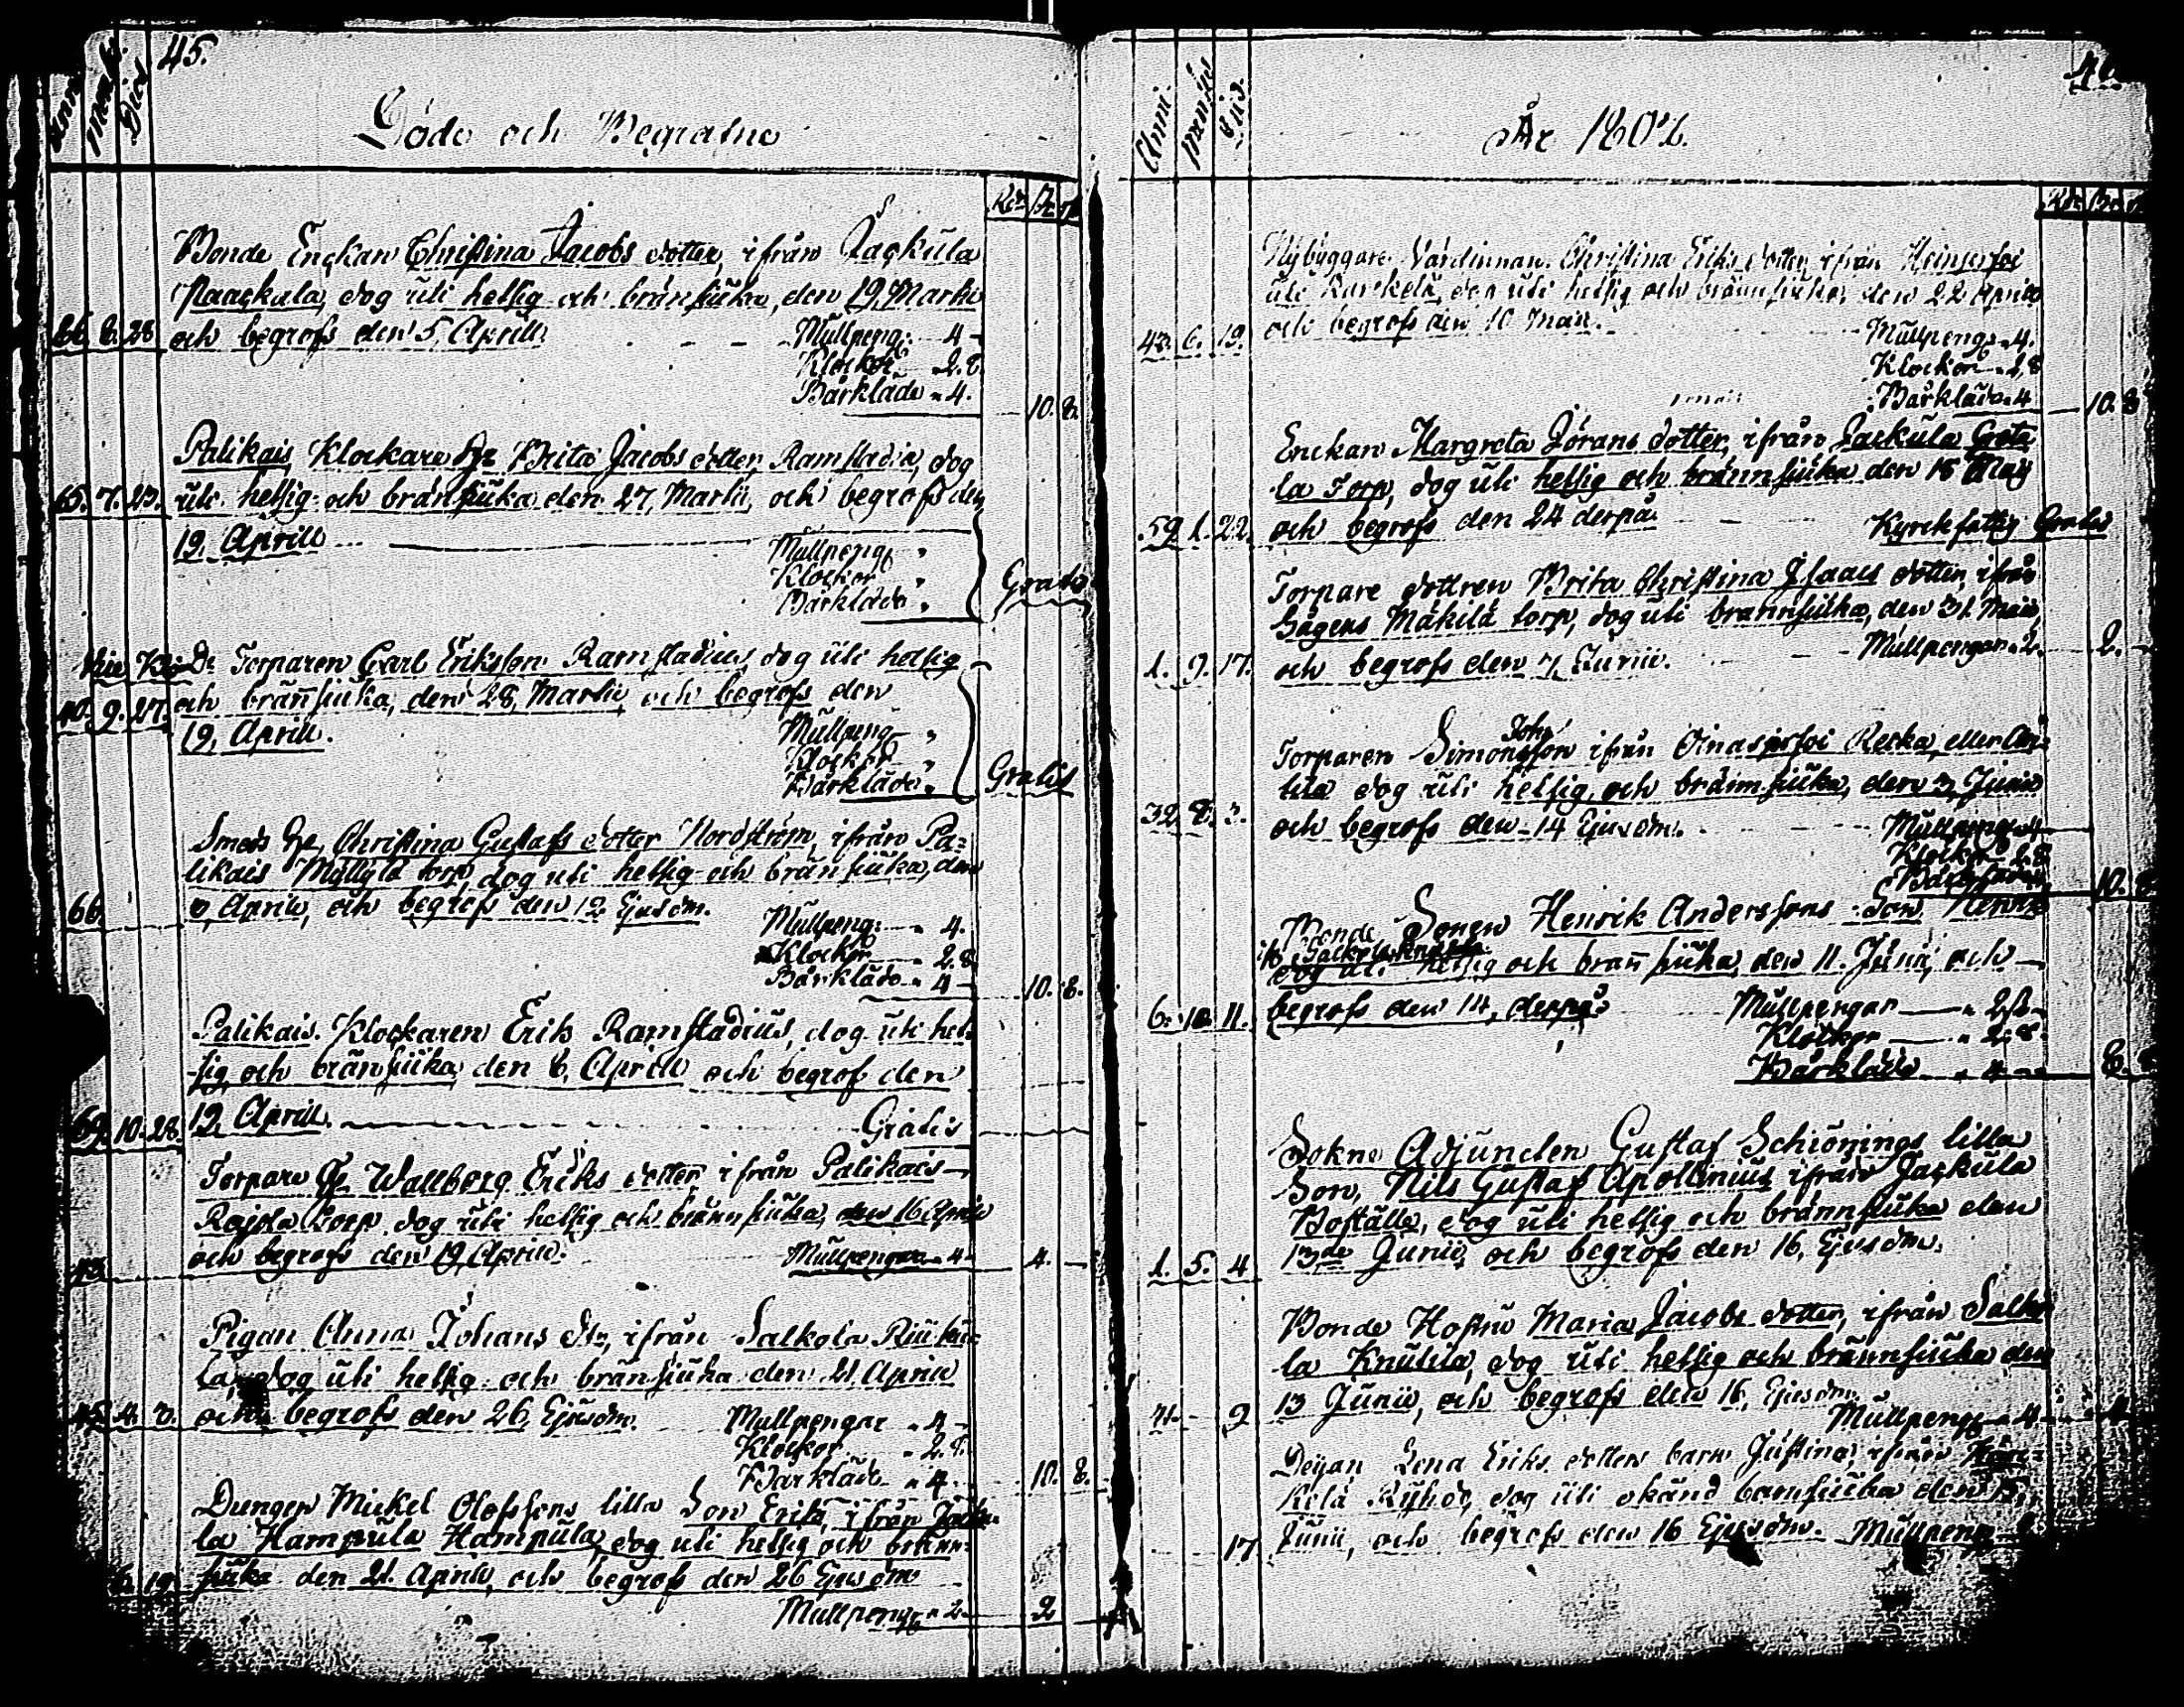 45.
Döde och Begrafne
Bonde Enckan Christina Jacobs dotter, ifrån Jackula
Paackula, dog uti hetsig och brännsiuka, den 19. Martii
och begrofs den 5. Aprill.
Mullpeng: 4
Klockor 2.8.
Bårkläde 4.
10. 8.
Palikais Klockare Hr Brita Jacobs dotter Ramstadia, dog
65. 7. 23. uti hetsig och brännsiuka den 27. Martii, och begrofs den
19. Aprill
Mullpeng:
Klockor
Bårkläde
Gratis
Torparen Carl Eriksson Ramstadius, dog uti hetsig
40. 9. 27. och brännsiuka, den 28. Martii, och begrofs den
19. Aprill.
Mullpeng
Klockor
Bårkläde
Gratis
Smeds Christina Gustafs dotter Nordström, ifrån Pa-
likais Myllylä torp, dog uti hetsig och brännsiuka, den
66. Aprill, och begrofs den 12 Ejusdm.
Mullpeng: 4.
Klockor 2.8
Bårkläde 4
10. 8.
Palikais Klockaren Erik Ramstadius, dog uti het-
sig och brännsiuka, den 6. Aprill och begrof den
69. 10. 28. 19. Aprill. Gratis
Torpare Wallborg Eriks dotter ifrån Palikais
Rajola torp, dog uti hetsig och brännsiuka, den 16 Aprill
och begrofs den 19 Aprill. Mullpengar 4 4.
Pigan Anna Johans dtr, ifrån Salkola
la, dog uti hetsig och brännsiuka den 21. Aprill
45. 4. 3. och begrofs den 26, Ejusdm. Mullpengar 4
Klockor 2.8.
Bårkläde 4.
10. 8.
Drengen Mickel Olofssons lilla Son Erik, ifrån Jacku-
la Hampula Hampula, dog uti hetsig och bränn-
siuka den 21. Aprill, och begrofs den 26 Ejusdm
Mullpeng: 2 2
År 1808.
Nybyggare Värdinnan Christina Eriks dotter ifrån
uti Karkela, dog uti hetsig och brännsiuka, den 22 Aprill
och begrofs den 10 Maii.
Mullpeng: 4.
Klockor 2,8
Bårkläde 4
10. 8
Enckan Margreta Jörans dotter, ifrån Jackula
la Torp, dog uti hetsig och brännsiuka den 15 Maij
59. 1. 22. och begrofs den 24 derpå. Kyrckfattig Gratis
Torpare dottren Brita Christina Isaacs dotter, ifrån
Sågens Mäkilä torp, dog uti brännsiuka, den 31. Maii,
1. 9. 17. och begrofs den 7 Junii. Mullpengar 2. 2.
Torparen Simon Johsson ifrån Retka, eller
dog uti hetsig och brännsiuka, den 3, Junii
32. 8. 3. och begrofs den 14 Ejusdm. Mullpeng: 4
Klockor 2.8
Bårkläde
10. 8
Bonde Sonen Henrik Anderssons Son Henrik
dog uti hetsig och brännsiuka, den 11. Junii, och
6. 10. 11. begrofs den 14, derpå. Mullpengar 2
Klockor 2.8.
Bårkläde 4
8.
Sokne Adjuncten Gustaf Schrönings lilla
Son, Nils Gustaf Apollonius, ifrån Jackula
Boställe, dog uti hetsig och brännsiuka den
1. 5. 4 13de Junii, och begrofs den 16, Ejusdm.
Bonde Hustru Maria Jacobs dotter, ifrån Salko-
la Knutila, dog uti hetsig och brännsiuka den
13 Junii, och begrofs den 16, Ejusdm.
Mullpeng: 4
Deijan Lena Eriks dotters barn Justina, ifrån
dog uti okänd barnsiucka den
17 Junii, och begrofs den 16 Ejusdm. Mullpeng